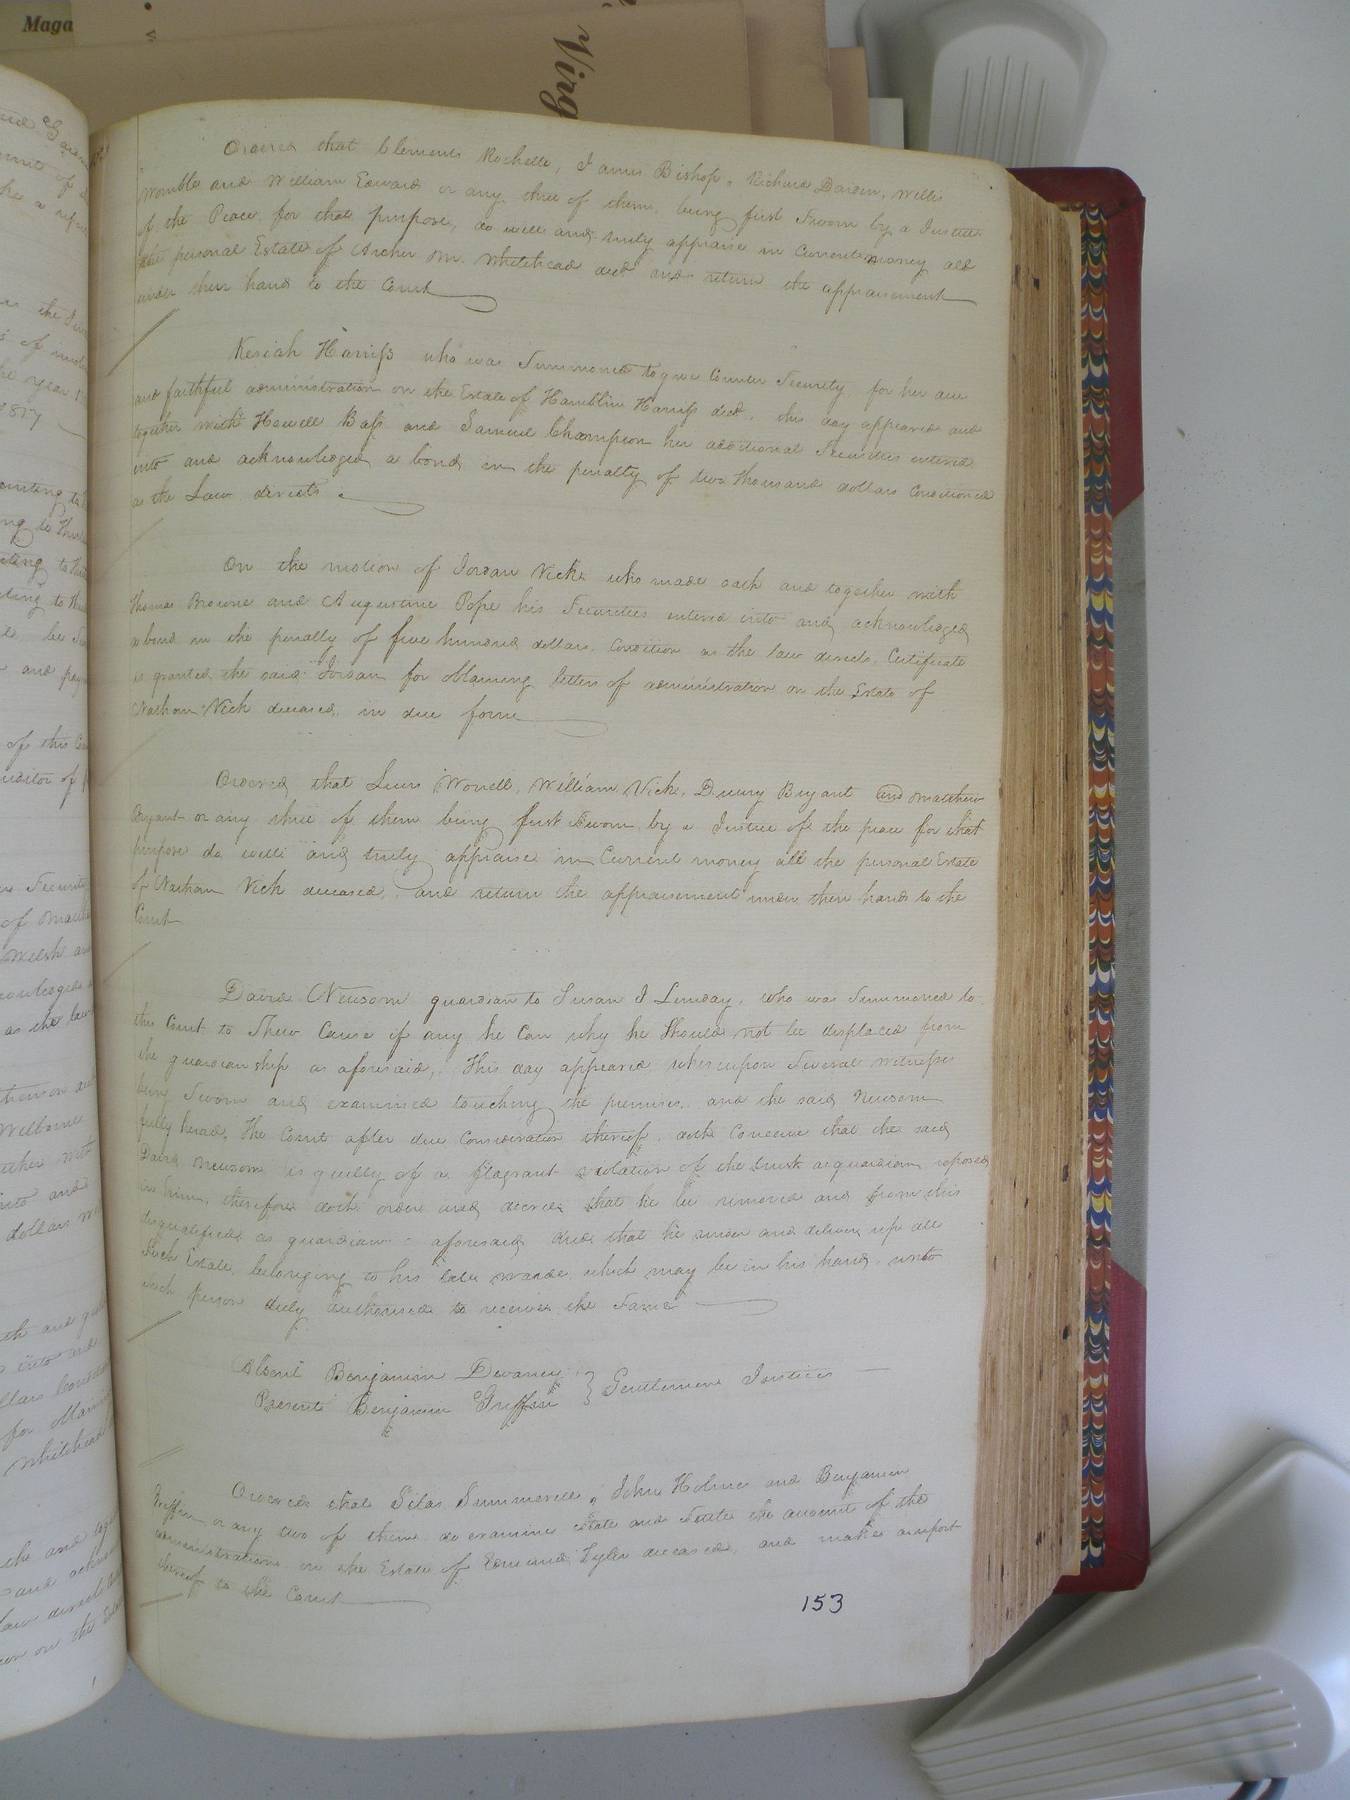 Maga
Virg
Ordered that Clements Rochelle, James Bishop, Richard Darden, Willis
Womble and William Edwards or any three of them, being first Sworn by a Justice
of the Peace, for that purpose, do well and truly appraise in Current money all
the personal Estate of Archer M. Whitehead decd and return the appraisement
under their hand to the Court
Keziah Harriss who was Summoned to give Counter Security, for her due
and faithful administration on the Estate of Hamblin Harriss decd, this day appeared and
together with Howell Bass and Samuel Champion her additional Securities entered
into and acknowledged a bond in the penalty of two thousand dollars Conditioned
as the Law directs.
On the motion of Jordan Vick who made oath and together with
Thomas Browne and Augustine Pope his Securities entered into and acknowledged
a bond in the penalty of five hundred dollars, Condition as the law directs, Certificate
is granted the said Jordan for obtaining letters of administration on the Estate of
Nathan Vick deceased, in due form
Ordered that Lewis Worrell, William Vick, Drewry Bryant and Matthew
Bryant or any three of them being first Sworn by a Justice of the peace for that
purpose do well and truly appraise in Current money all the personal Estate
of Nathan Vick deceased, and return the appraisement under their hands to the
Court
David Newsom guardian to Susan J Lunday, who was Summoned to
this Court to Shew Cause if any he Can why he Should not be displaced from
the guardianship as aforesaid, This day appeared whereupon Several witnesses
being Sworn and examined touching the premises, and the said Newsom
fully heard, The Court after due Consideration thereof, doth Conceive that the said
David Newsom is guilty of a flagrant violation of the trust as guardian reposed
in him, therefore doth order and decree that he be removed and from this
disqualified as guardian aforesaid, and that he render and deliver up all
Such Estate, belonging to his late warde, which may be in his hands, unto
such person duly authorised to receive the Same
Absent Benjamin Devaney
Present Benjamin Griffin } Gentlemen Justices
Ordered that Silas Summerell, John Holmes and Benjamin
Griffin or any two of them do examine State and Settle the amount of the
administration on the Estate of Edmund Tyler deceased, and make a report
thereof to the Court
153